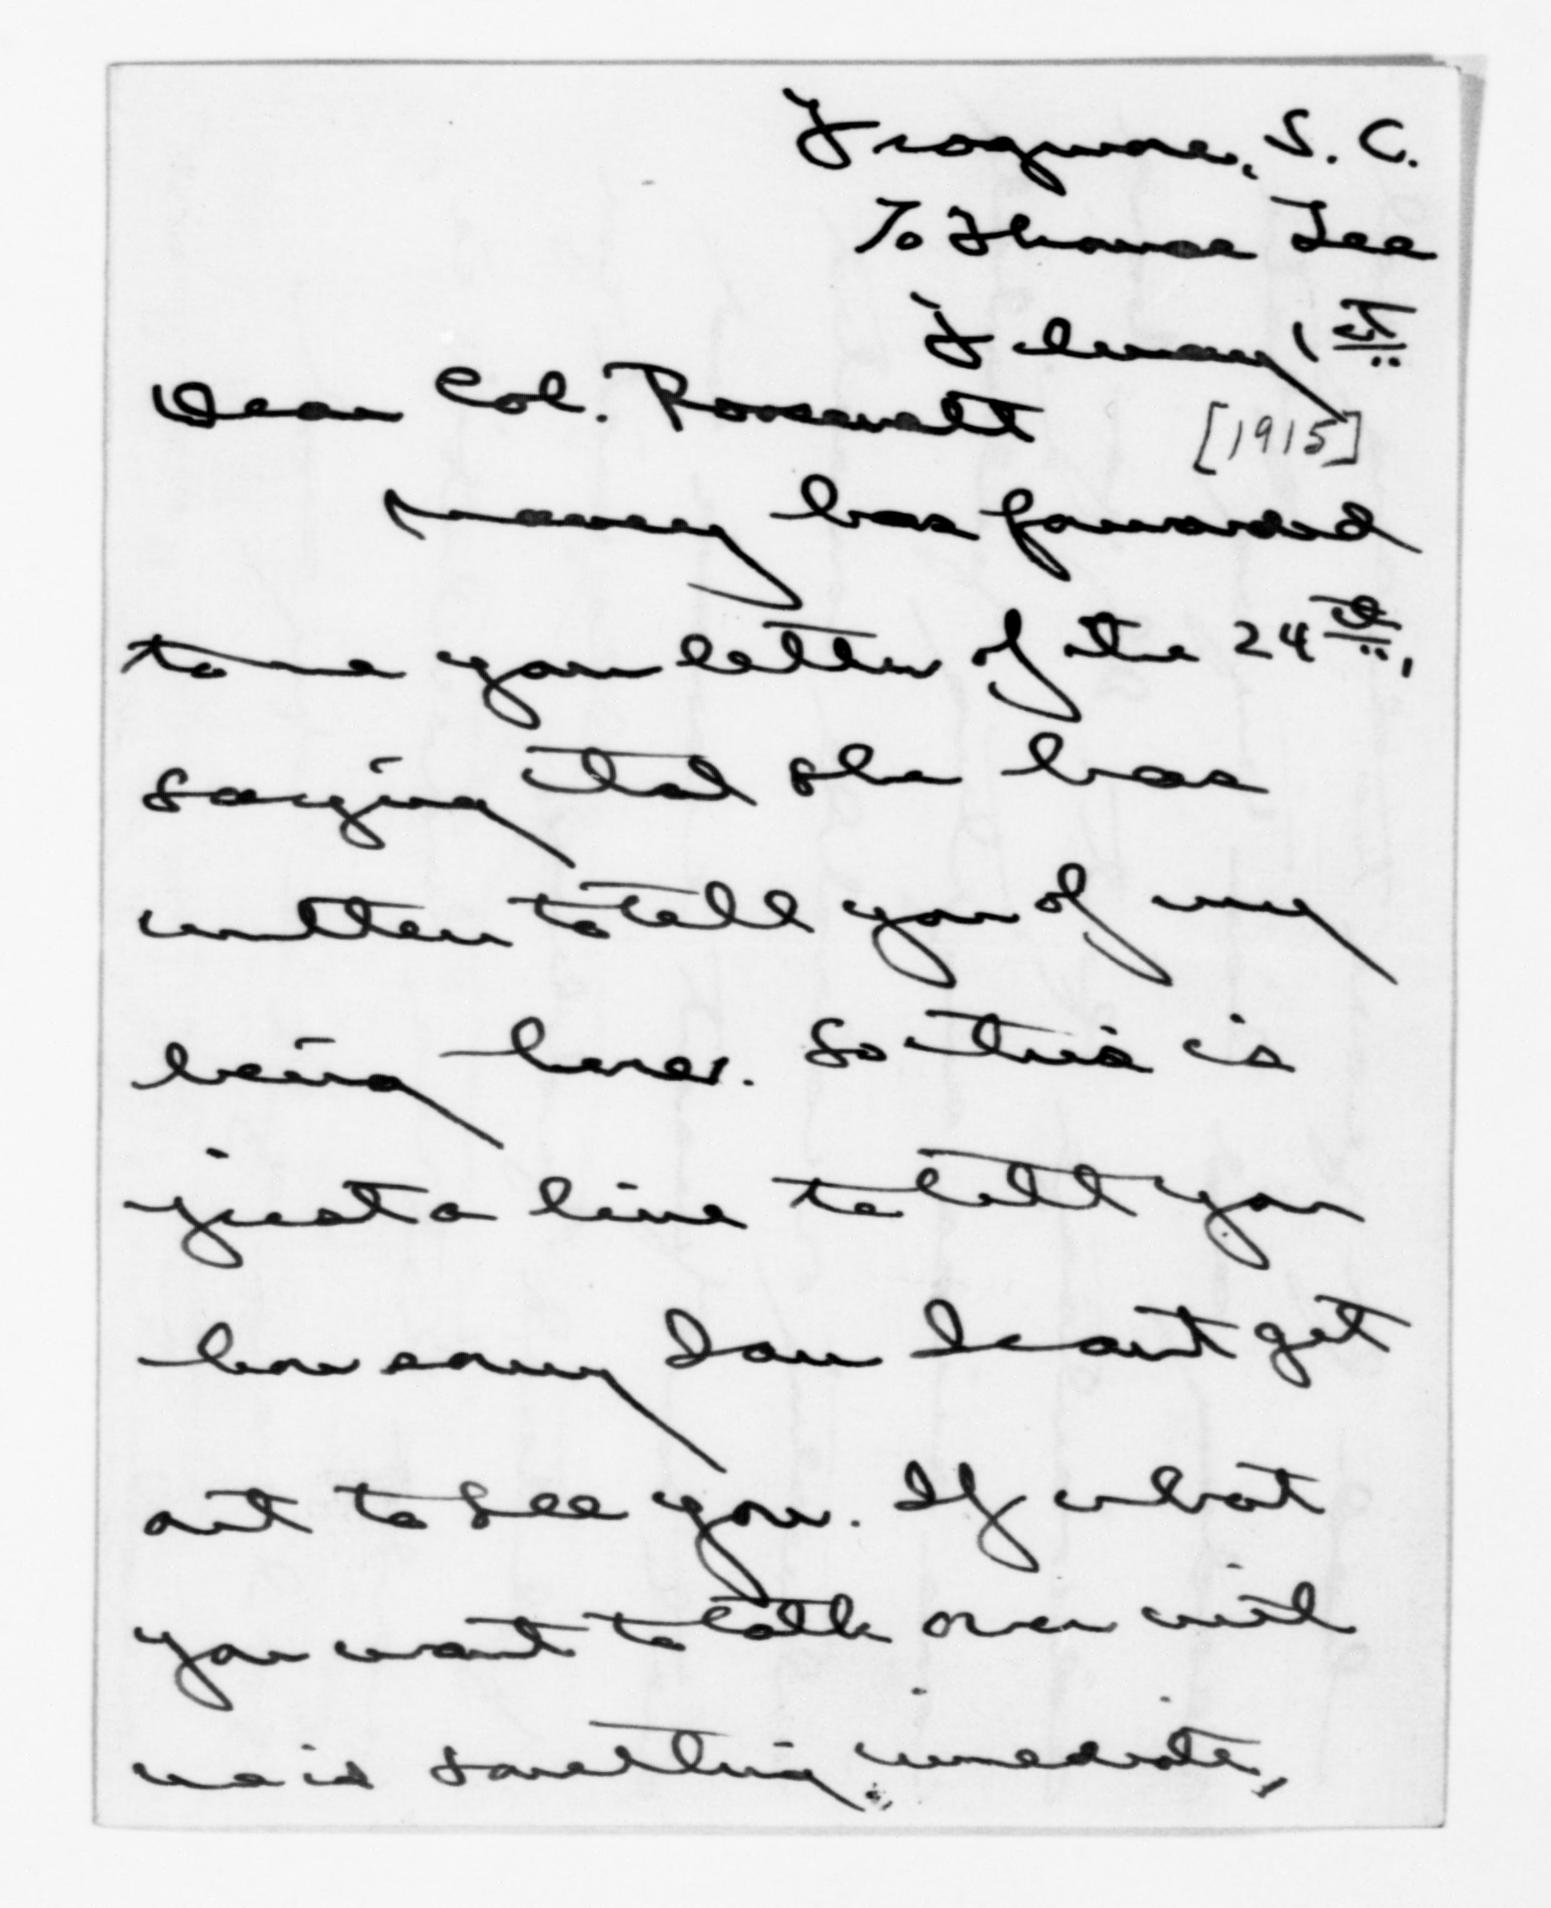 Frogmore, S. C.
℅ Thomas Lee
February 1st
Dear Col. Roosevelt
[1915]
Nancy has forwarded
to me your letter of the 24th,
saying that she has
written to tell you of my
being here. So this is
just a line to tell you
how sorry I am I can't get
out to see you. If what
you want to talk over with
me is something immediate,